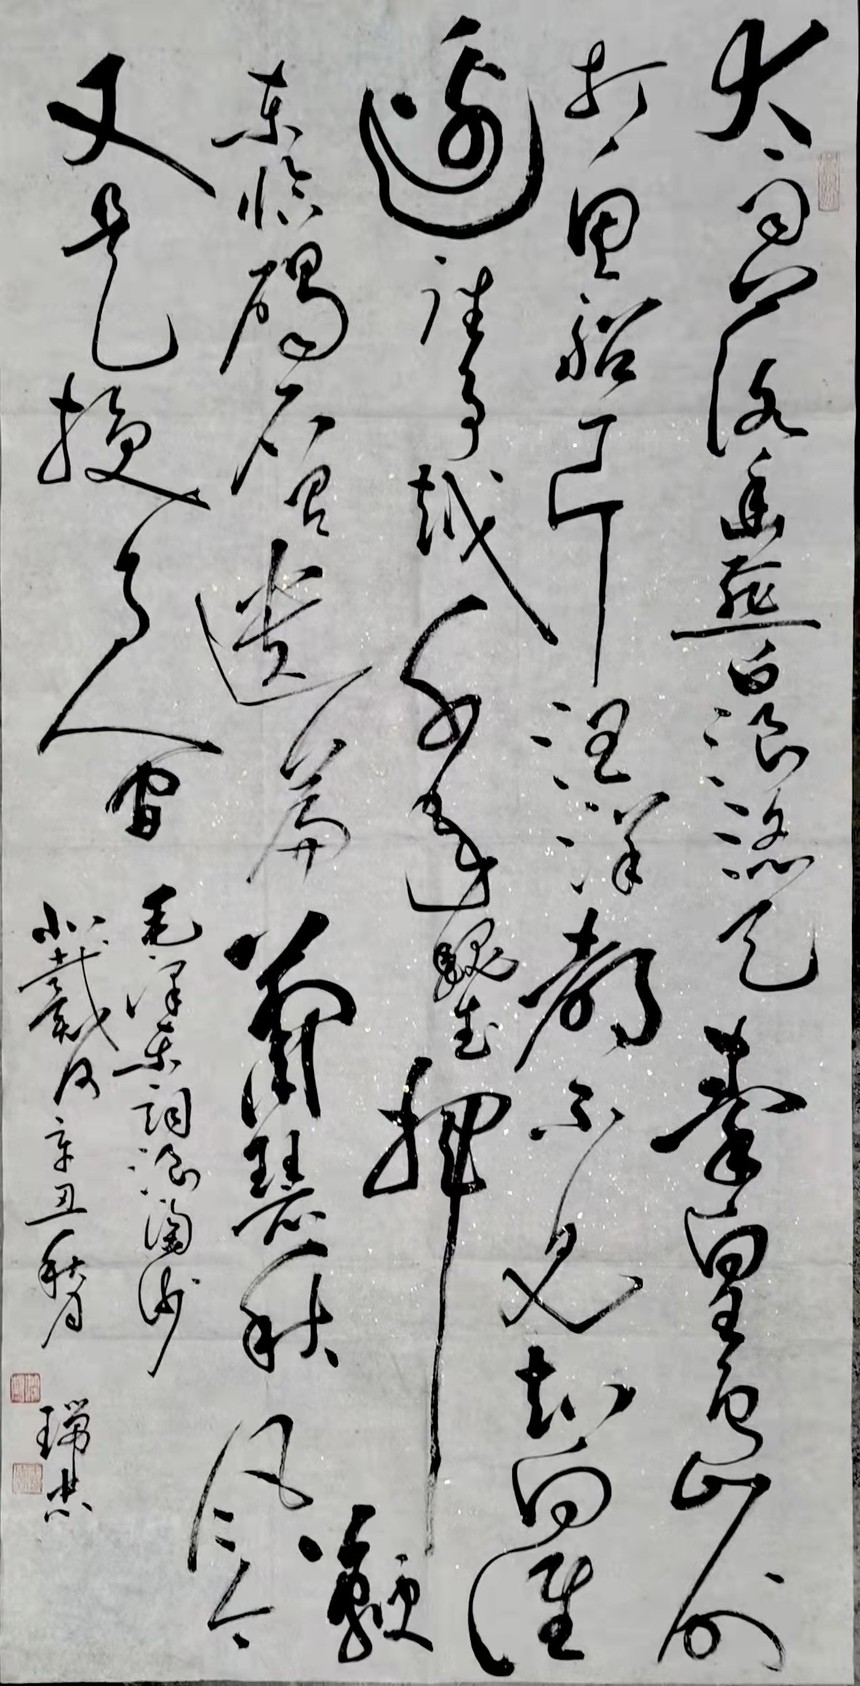 大雨落幽燕白浪滔天秦皇岛外
打鱼船一片汪洋都不见知向谁
边往事越千年魏武挥鞭
东临碣石有遗篇萧瑟秋风今
又是换了人间
毛泽东词浪淘沙
北戴河辛丑秋月 瑞